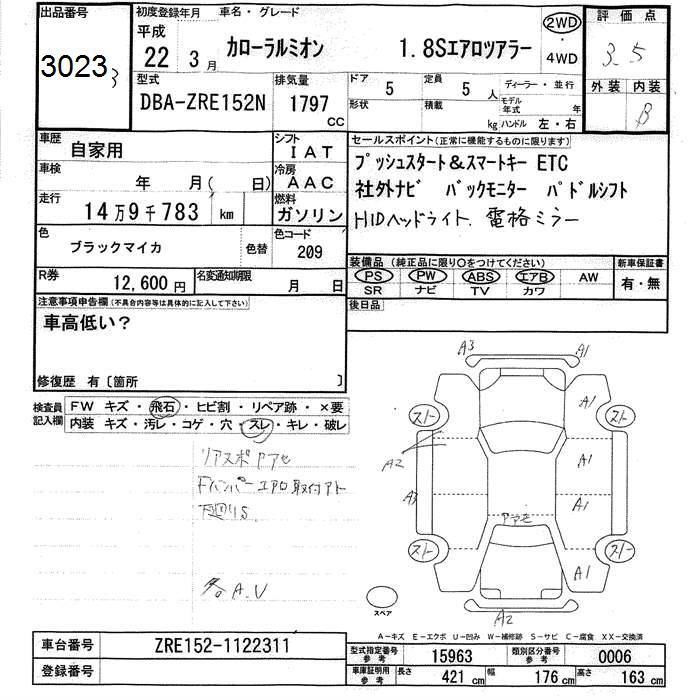 出品番号
3023
3
初度登録年月
平成
22 3月
車名・グレード
カローラルミオン 1.8Sエアロツアラー
2WD
4WD
評価点
3.5
外装 内装
B
型式
DBA-ZRE152N
排気量
1797
cc
ドア
5
定員
5人
形状
積載
kg
ディーラー・並行
モデル年式 年
ハンドル 左・右
車歴
自家用
シフト
IAT
車検
年 月( 日)
冷房
AAC
走行
14万9千783 km
燃料
ガソリン
色
ブラックマイカ
色替
色コード
209
R券
12,600円
名変通知期限
月 日
セールスポイント(正常に機能するものに限ります)
プッシュスタート&スマートキー ETC
社外ナビ バックモニター パドルシフト
HIDヘッドライト. 電格ミラー
装備品(純正品に限り○をつけてください)
PS PW ABS エアB AW
SR ナビ TV カワ
新車保証書
有・無
後日品
注意事項申告欄(不具合内容等は具体的に記入して下さい)
車高低い?
修復歴 有〔箇所 〕
検査員記入欄
FW キズ・飛石・ヒビ割・リペア跡・×要
内装 キズ・汚レ・コゲ・穴・スレ・キレ・破レ
リアスポアアセ
Fバンパーエアロ取付アト
下廻りS
各A.U
A3 A1
スト スト
A1
A2
A3 A1
アアセ
スト スト
A1
A2
スペア
A−キズ E−エクボ U−凹み W−補修跡 S−サビ C−腐食 XX−交換済
車台番号
ZRE152-1122311
登録番号
型式指定番号 参考
15963
類別区分番号 参考
0006
車庫証明用 参考
長さ 421 cm
幅 176 cm
高さ 163 cm